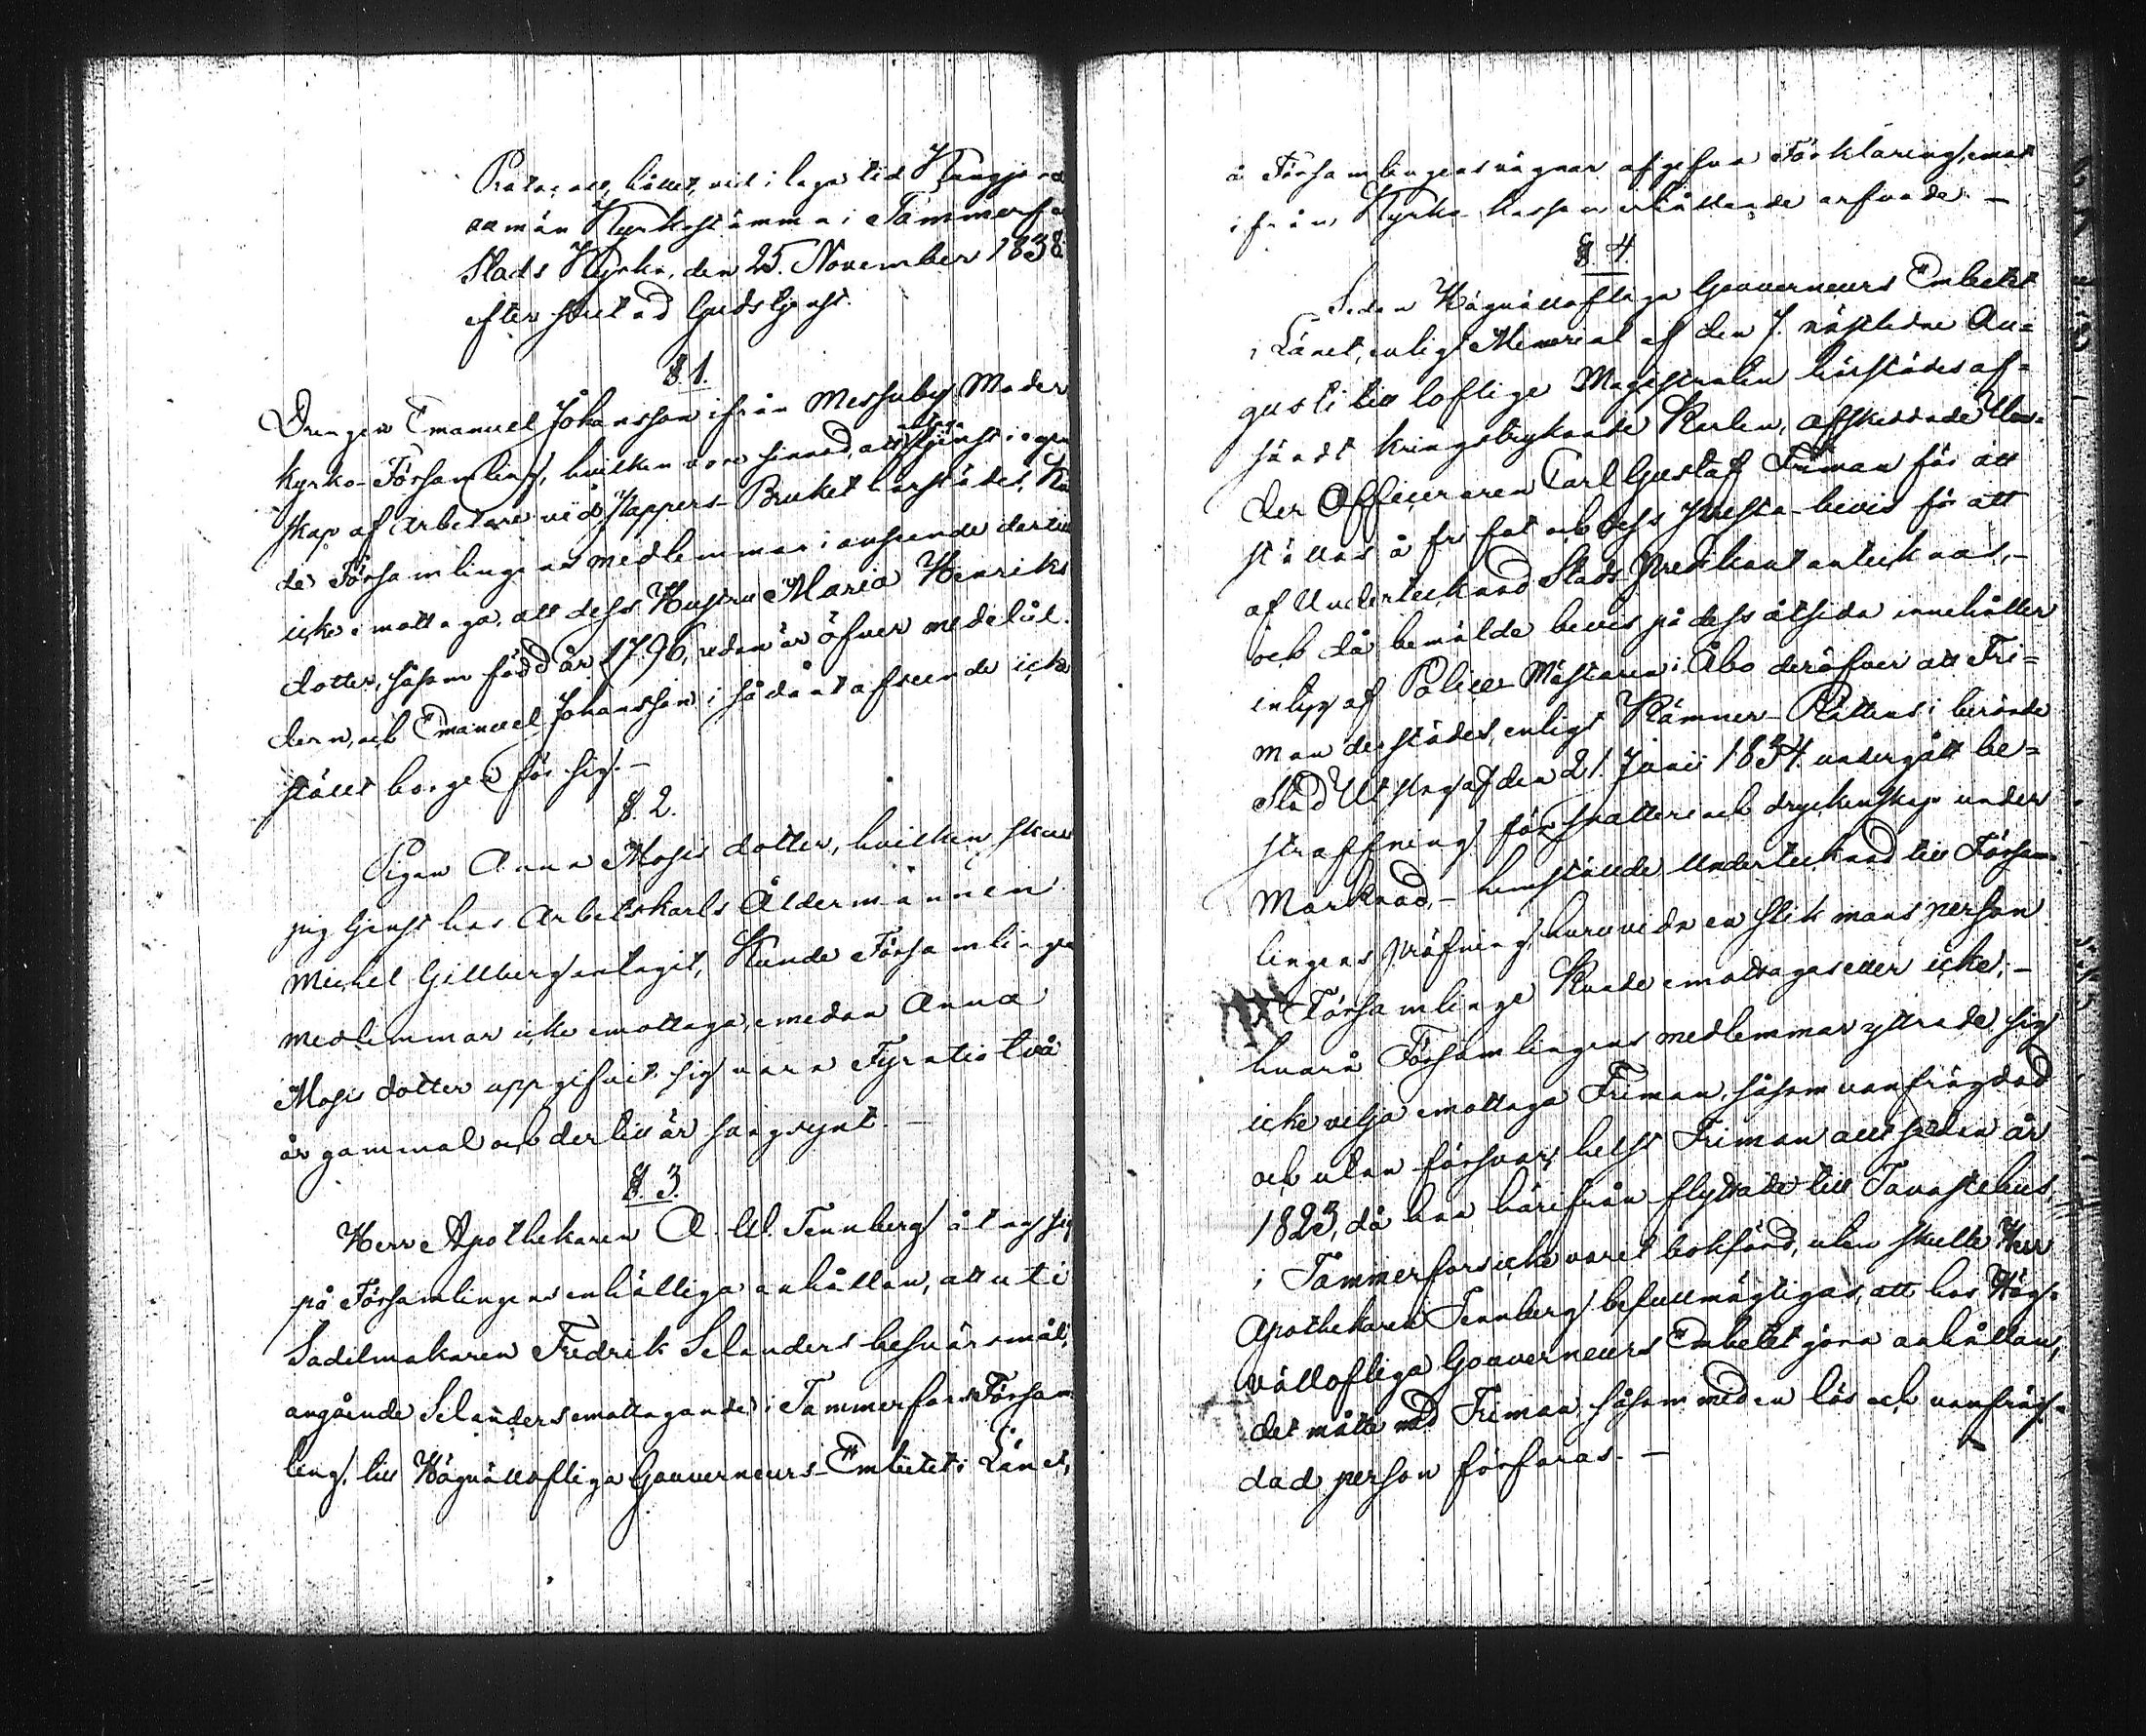 Protocoll, hållet, vid i laga tid Kungjord
allmän Kyrkostämma i Tammerfors
Stads Kyrka, den 25. November 1838
efter förrättad Gudstjenst.
§. 1.
Drengen Emanuel Johansson ifrån Messuby Moder
kyrko-Församling, hvilken vore sinnad, att antaga tjenst i egen
skap af Arbetare vid Pappers-Bruket härstädes, Kun
de Församlingens medlemmar i anseende dertill
icke emottaga, att dess Hustru Maria Henriks
dotter, såsom född år 1796, redan är öfver medelål
dern, och Emanuel Johansson i sådant afseende icke
ställt borgen för sig. –
§. 2.
Pigan Anna Mosis dotter, hvilken skall
sig tjenst hos Arbetskarls Åldermannen
Michel Gillberg antagit, Kunde Församlingens
medlemmar icke emottaga, emedan Anna
Mosis dotter uppgifvit sig vara Fyratiotvå
år gammal och dertill är svagsynt. –
§. 3.
Herr Apothekaren A. W. Tennberg åtog sig
på Församlingens enhälliga anhållan, att uti
Sadelmakaren Fredrik Selanders besvärsmål,
angående Selanders emottagande i Tammerfors Försam
ling, till Högvällofliga Gouverneurs-Embetet i Länet,
å Församlingens vägnar afgifva Förklaring, emot
ifrån Kyrko-Kassan erhållande arfvode. –
§. 4.
Sedan Högvällofliga Gouverneurs Embetet
i Länet, enligt Memorial af den 7. nästledne Au=
gusti till loflige Magistraten härstädes af=
sändt kringstrykande Karlen, afskedade Un=
der Officeraren Carl Gustaf Friman för att
ställas å fri fot och dess prestabevis för att
af Undertecknad Stads-Predikant antecknas, –
och då bemälde bevis på dess åtsida innehåller
intyg af Police-Mästaren i Åbo deröfver att Fri=
man derstädes, enligt Kämner-Rättens i berörde
Stad Utslag af den 21. Junii 1834. undergått be=
straffning för snatteri och dryckenskap under
Marknad, – hemställde Undertecknad till Försam=
lingens pröfning, huruvida en slik mansperson
i Församlinge Kunde emottagas eller icke, –
hvarå Församlingens medlemmar yttrade sig
icke velja emottaga Friman, såsom vanfrägdad
och utan försvar, helst Friman allt sedan år
1823, då han härifrån flyttade till Tavastehus
i Tammerfors icke varit bokförd, utan skulle Herr
Apothekaren Tennberg befullmägtigas, att hos Hög=
vällofliga Gouverneurs Embetet göra anhållan,
det måtte med Friman såsom med en lös och vanfräg=
dad person förfaras. –